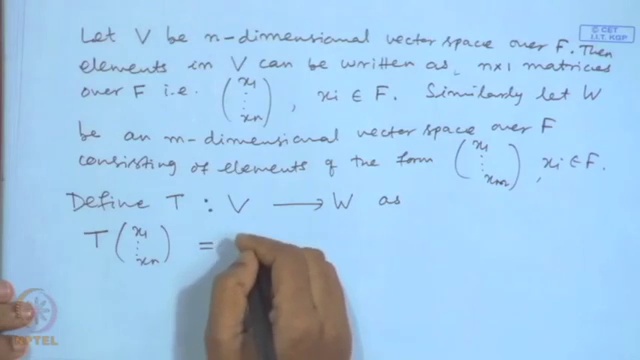 © CET
I.I.T. KGP
Let V be n-dimensional vector space over F. Then
elements in V can be written as, n×1 matricies
over F i.e. (x1 ⋮ xn), xi ∈ F. Similarly let W
be an m-dimensional vector space over F
consisting of elements of the form (x1 ⋮ xm), xi ∈ F.
Define T : V → W as
T (x1 ⋮ xn) =
NPTEL